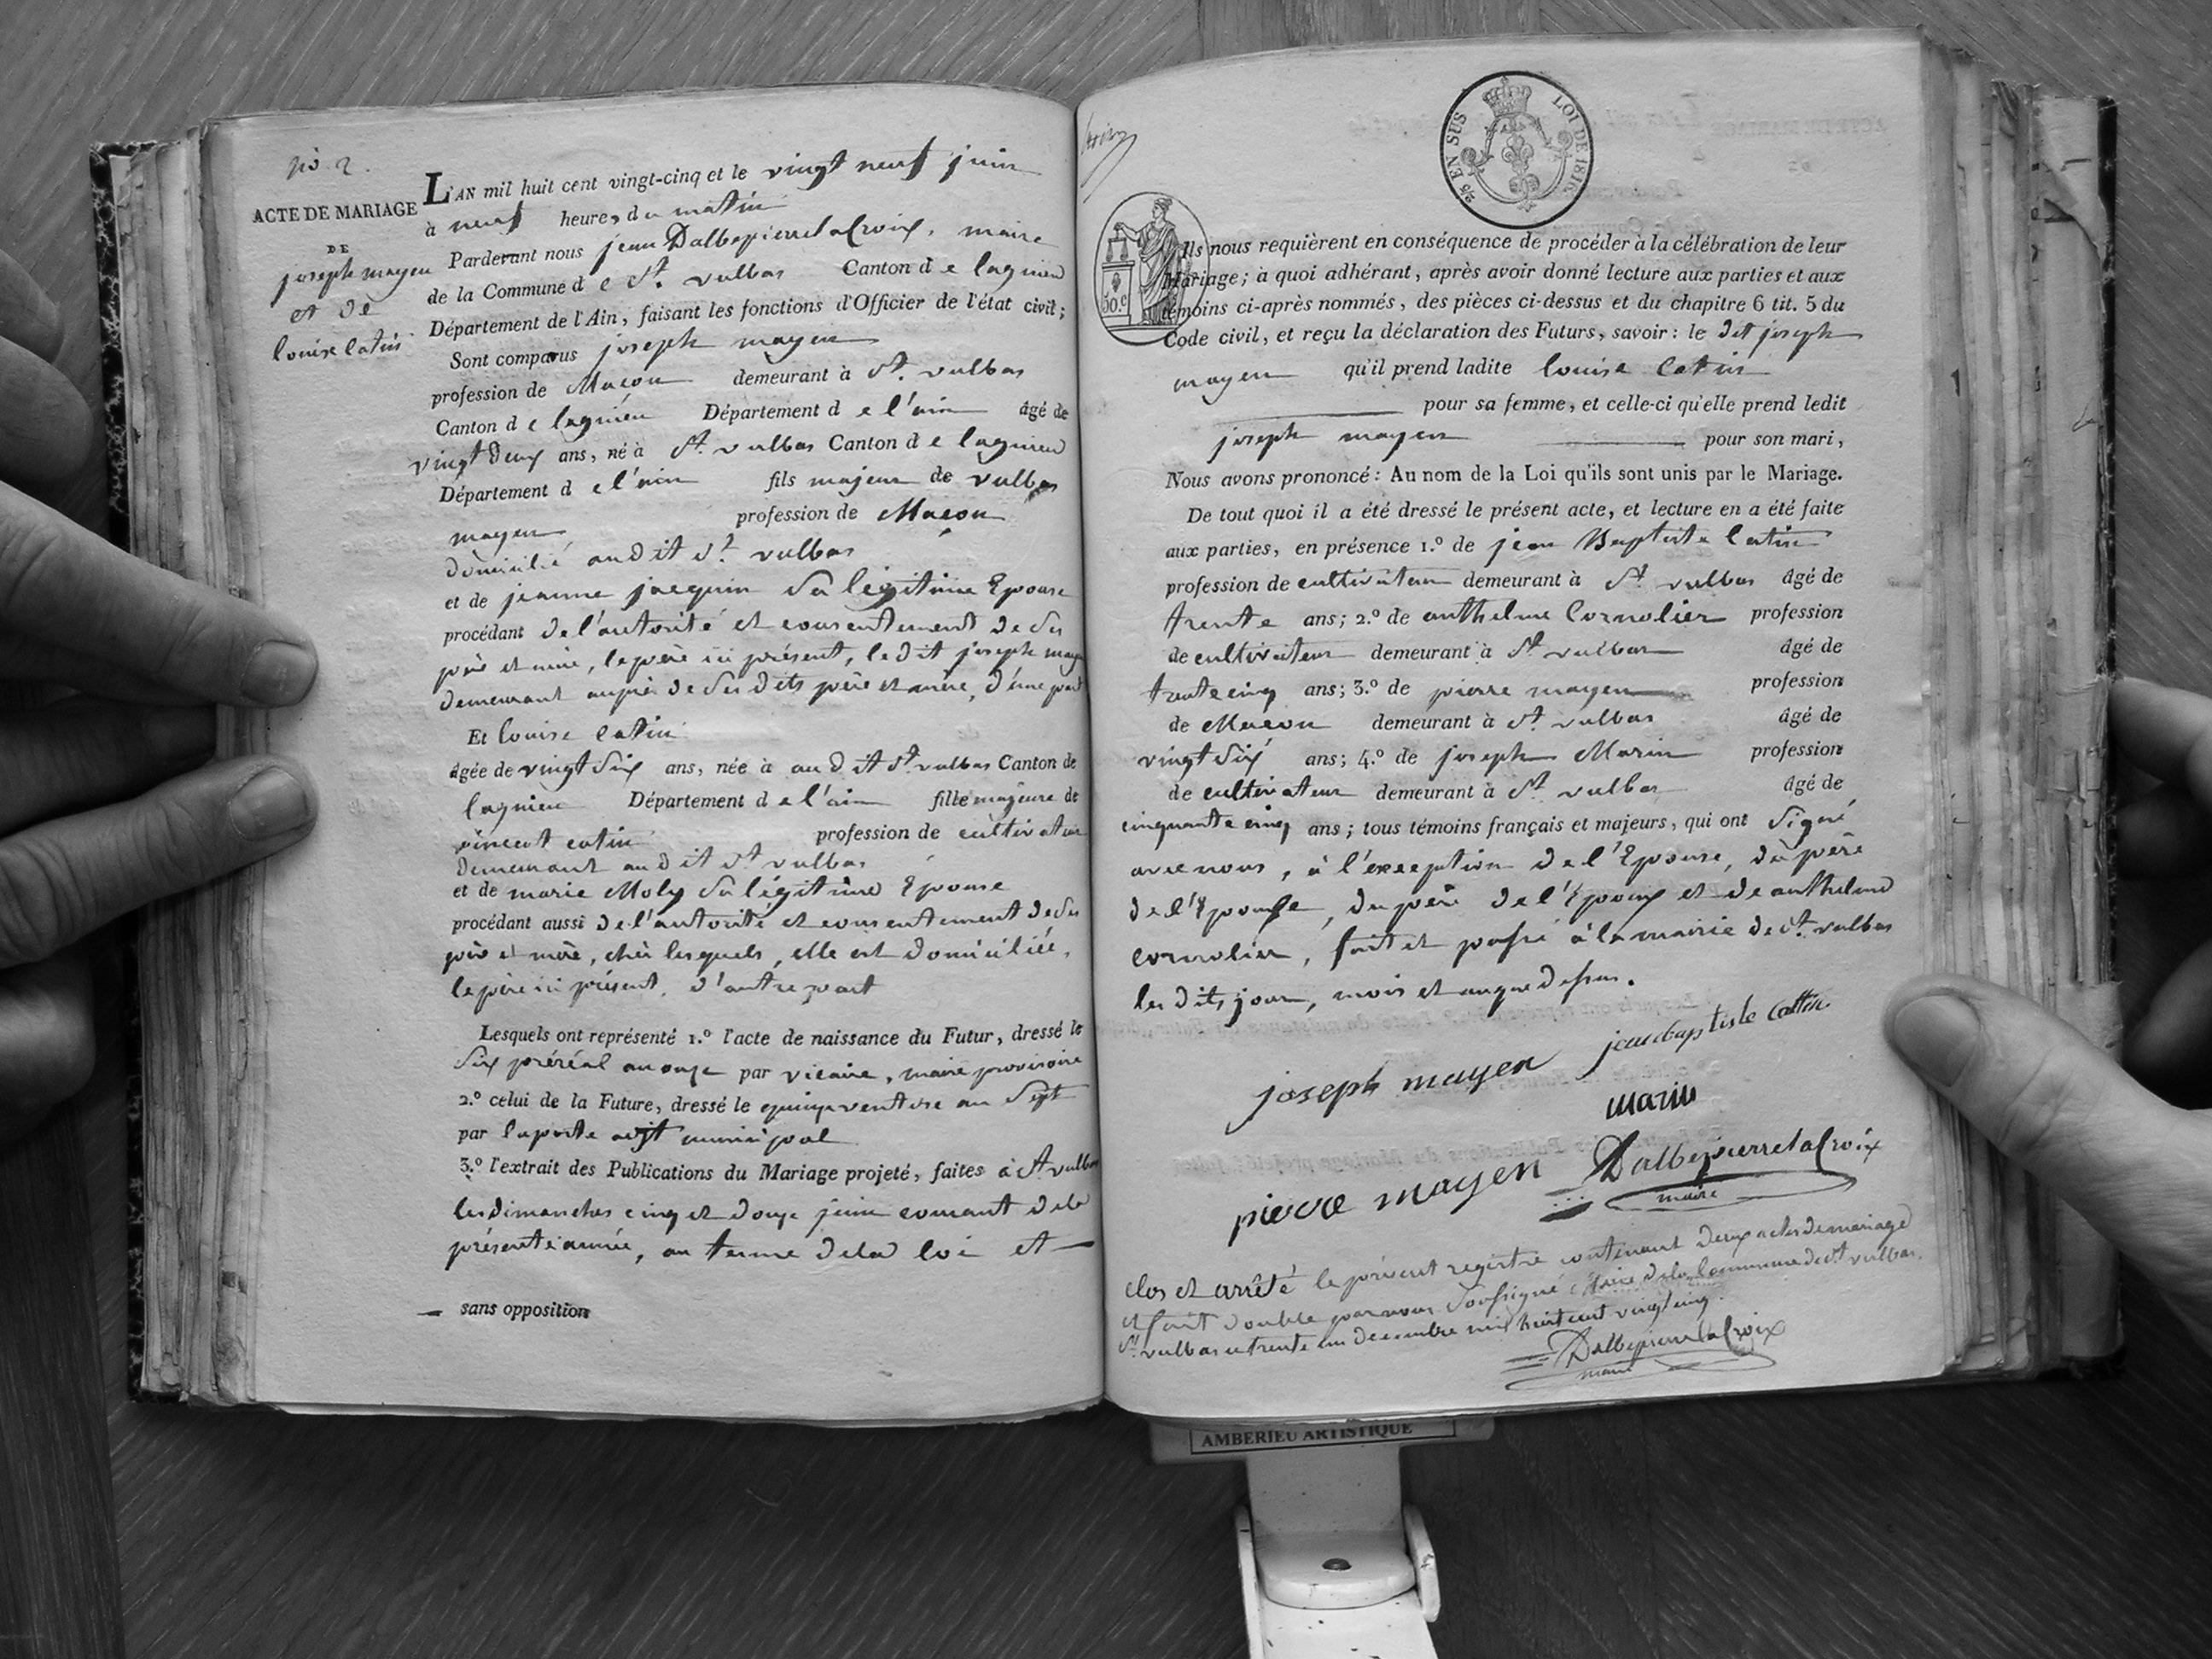 no. 2.
ACTE DE MARIAGE
DE
joseph mayen
et de
louise catin
L'AN mil huit cent vingt-cinq et le vingt neuf juin
à neuf heures du matin
Pardevant nous jean Dalbepierrelacroix, maire
de la Commune de St. vulbas Canton de lagnieu
Département de l'Ain, faisant les fonctions d'Officier de l'état civil;
Sont comparus joseph mayen
profession de Maçon demeurant à St. vulbas
Canton de lagnieu Département de l'ain âgé de
vingt deux ans, né à St. vulbas Canton de lagnieu
Département de l'ain fils majeur de vulbas
mayen profession de Maçon
domicilié audit St. vulbas
et de jeanne jacquin Sa légitime Epouse
procédant de l'autorité et consentement de Ses
père et mère, le père ici présent, le dit joseph mayen
demeurant auprès de Ses dits père et mère, d'une part
Et louise catin
âgée de vingt Six ans, née à au dit St. vulbas Canton de
lagnieu Département de l'ain fille majeure de
vincent catin profession de cultivateur
demeurant au dit St vulbas
et de marie Moly Sa légitime Epouse
procédant aussi de l'autorité et consentement de Ses
père et mère, chés lesquels, elle est domiciliée,
le père ici présent, d'autre part
Lesquels ont représenté 1.º l'acte de naissance du Futur, dressé le
Six préréal an onze par vicaire, maire provisoire
2.º celui de la Future, dressé le quinze ventose an Sept
par laporte agt municipal
3.º l'extrait des Publications du Mariage projeté, faites à St vulbas
les dimanches cinq et douze juin courant de la
présente année, au terme de la loi et
sans opposition
2/5 EN SUS LOI DE 1816
50.c
Ils nous requièrent en conséquence de procéder à la célébration de leur
Mariage; à quoi adhérant, après avoir donné lecture aux parties et aux
témoins ci-après nommés, des pièces ci-dessus et du chapitre 6 tit. 5 du
Code civil, et reçu la déclaration des Futurs, savoir: le dit joseph
mayen qu'il prend ladite louise Catin
pour sa femme, et celle-ci qu'elle prend ledit
joseph mayen pour son mari,
Nous avons prononcé: Au nom de la Loi qu'ils sont unis par le Mariage.
De tout quoi il a été dressé le présent acte, et lecture en a été faite
aux parties, en présence 1.º de jean Baptiste Catin
profession de cultivateur demeurant à St vulbas âgé de
trente ans; 2.º de anthelme Cornolier profession
de cultivateur demeurant à St vulbas âgé de
trente cinq ans; 3.º de pierre mayen profession
de Maçon demeurant à St vulbas âgé de
vingt Six ans; 4.º de joseph Marin profession
de cultivateur demeurant à St vulbas âgé de
cinquante cinq ans; tous témoins français et majeurs, qui ont Signé
avec nous, à l'exception de l'Epouse, du père
de l'Epouse, du père de l'Epoux et de anthelme
cornolier, fait et passé à la mairie de St. vulbas
les dits jour, mois et an que dessus.
joseph mayen jean baptiste Cattin
marin
pierre mayen Dalbepierrelacroix
maire
clos et arrêté le présent registre contenant deux actes de mariage
et fait double par nous Soussigné Maire de la Commune de St vulbas.
St vulbas ce trente un decembre mil huit cent vingt cinq.
Dalbepierrelacroix
maire
AMBERIEU ARTISTIQUE